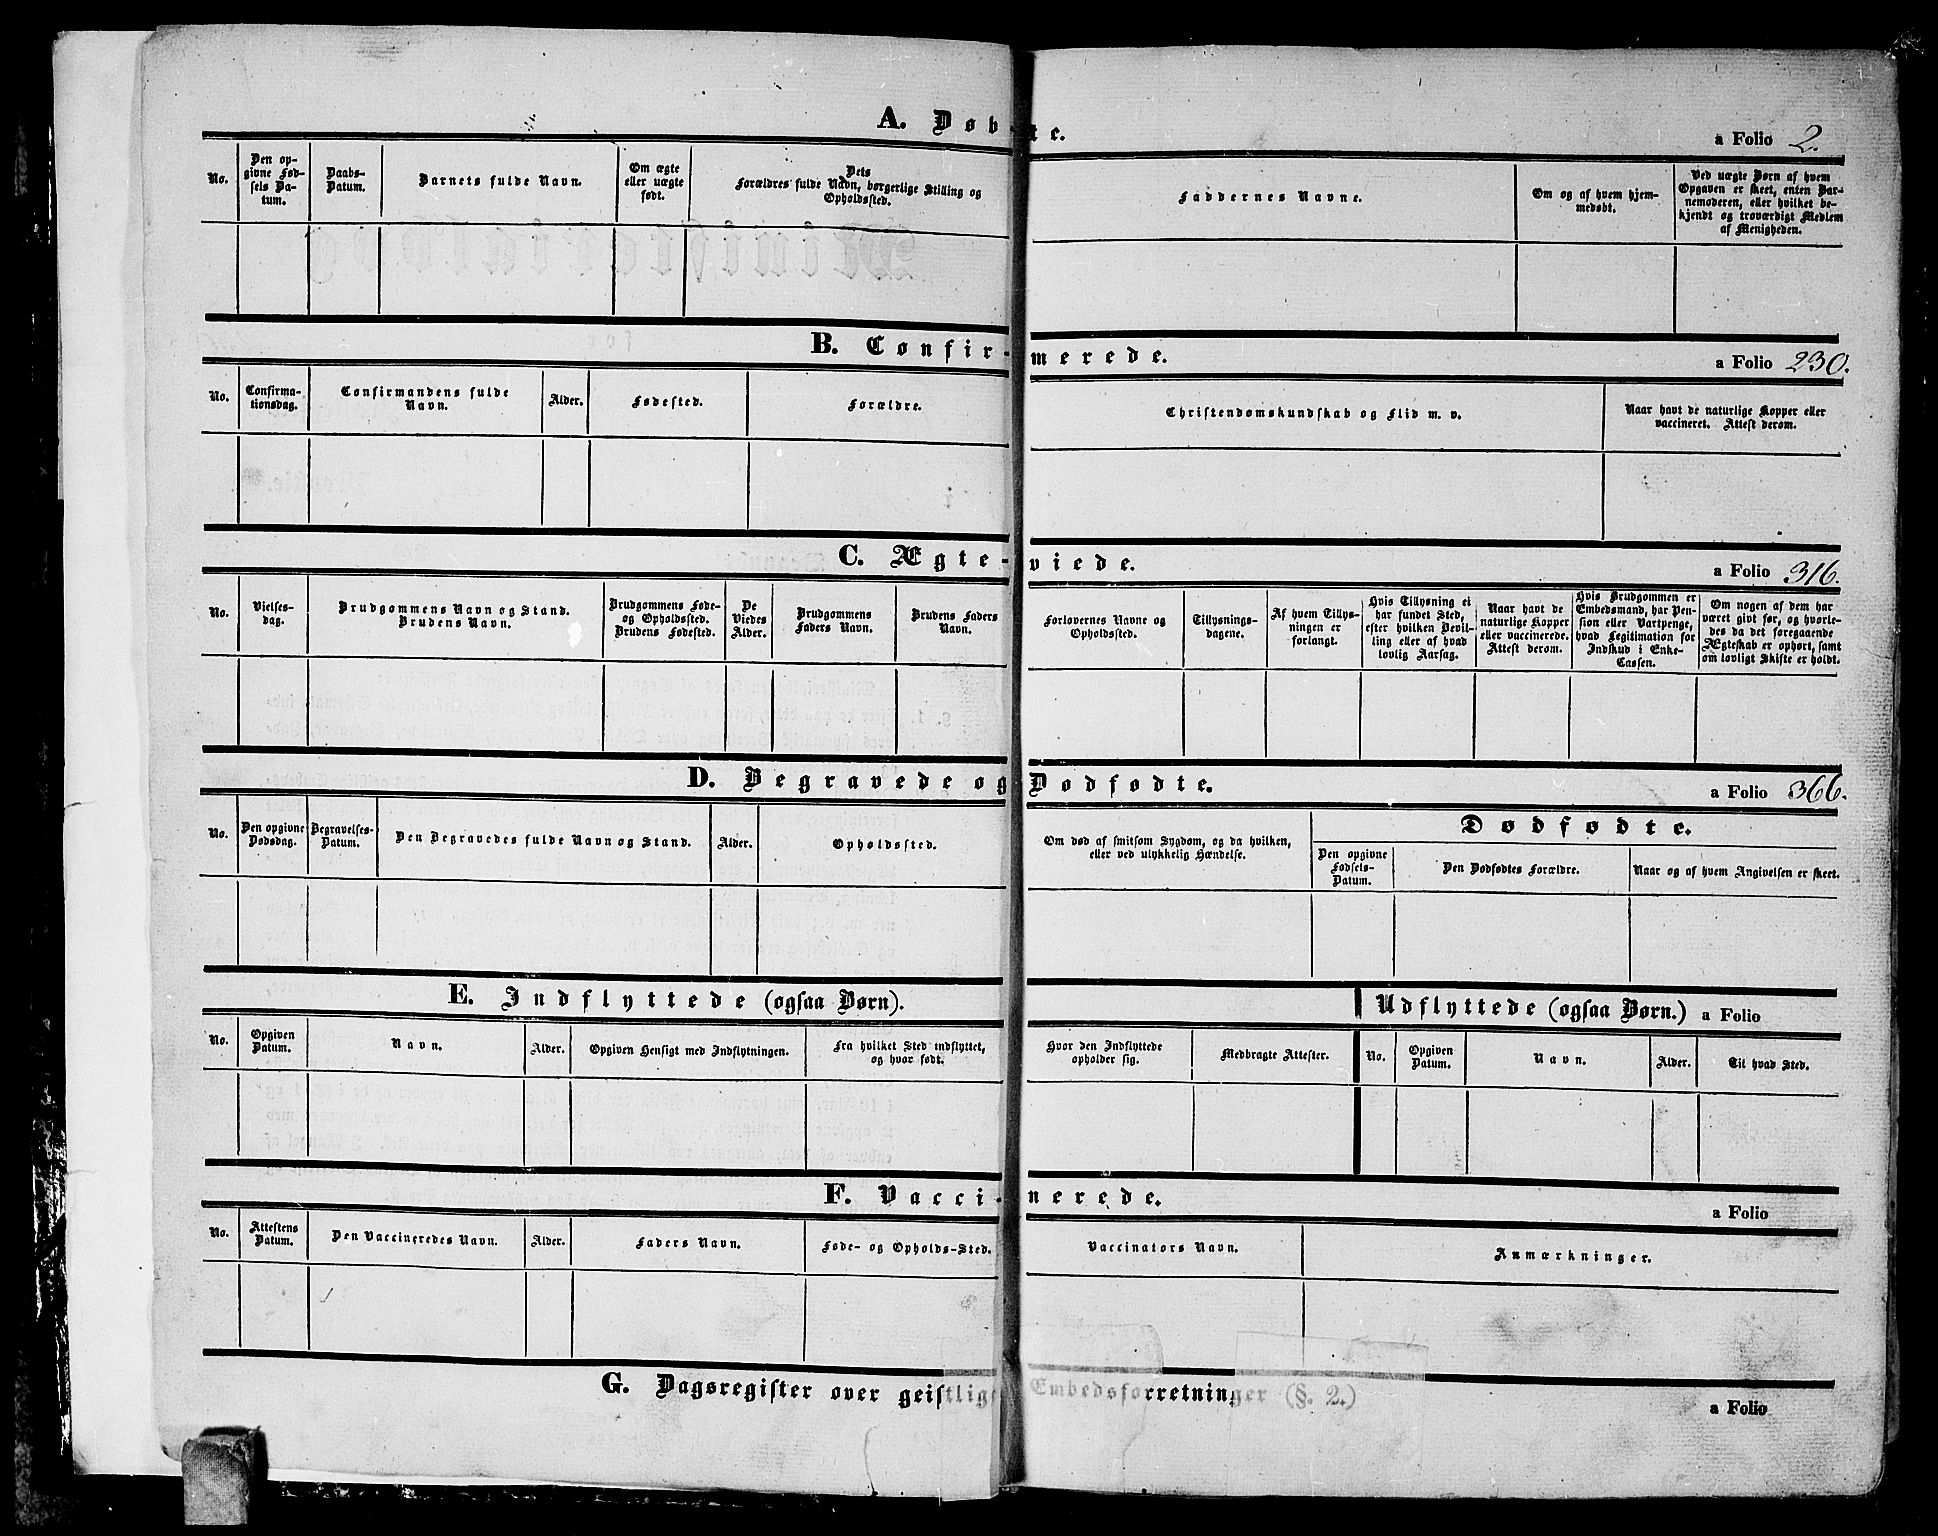 A. Døbte.
a Folio 2.
No.
Den op-
givne Fød-
sels Da-
tum.
Daabs-
Datum.
Barnets fulde Navn.
Om ægte
eller uægte
født.
Dets
Forældres fulde Navn, borgerlige Stilling og
Opholdssted.
Faddernes Navne.
Om og af hvem hjem-
medøbt.
Ved uægte Børn af hvem
Opgaven er skeet, enten Bar-
nemoderen, eller hvilket be-
kjendt og troværdigt Medlem
af Menigheden.
B. Confir-merede.
a Folio 230.
No.
Confirma-
tionsdag.
Confirmandens fulde
Navn.
Alder.
Fødested.
Forældre.
Christendomskundskab og Flid m. v.
Naar havt de naturlige Kopper eller
vaccineret. Attest derom.
C. Ægte-viede.
a Folio 316.
No.
Vielses-
dag.
Brudgommens Navn og Stand.
Brudens Navn.
Brudgommens Føde-
og Opholdssted.
Brudens Fødested.
De
Viedes
Alder.
Brudgommens
Faders Navn.
Brudens Faders
Navn.
Forlovernes Navne og
Opholdssted.
Tillysnings-
dagene.
Af hvem Tillys-
ningen er
forlangt.
Hvis Tillysning ei
har fundet Sted,
efter hvilken Bevil-
ling eller af hvad
lovlig Aarsag.
Naar havt de
naturlige Kopper
eller vaccinerede.
Attest derom.
Hvis Brudgommen er
Embedsmand, har Pen-
sion eller Vartpenge,
hvad Legitimation for
Indskud i Enke-
Cassen.
Om nogen af dem har
været givt før, og hvorle-
des da det foregaaende
Ægteskab er ophørt, samt
om lovligt Skifte er holdt.
D. Begravede og Dødfødte.
a Folio 366.
No.
Den opgivne
Dødsdag.
Begravelses-
Datum.
Den Begravedes fulde Navn og Stand.
Alder.
Opholdssted.
Om død af smitsom Sygdom, og da hvilken,
eller ved ulykkelig Hændelse.
Dødfødte.
Den opgivne
Fødsels-
Datum.
Den Dødfødtes Forældre.
Naar og af hvem Angivelsen er skeet.
E. Indflyttede (ogsaa Børn).
Udflyttede (ogsaa Børn.) a Folio
No.
Opgiven
Datum.
Navn.
Alder.
Opgiven Hensigt med Indflytningen.
Fra hvilket Sted indflyttet,
og hvor født.
Hvor den Indflyttede
opholder sig.
Medbragte Attester.
No.
Opgiven
Datum.
Navn.
Alder.
Til hvad Sted.
F. Vacci-nerede.
a Folio
No.
Attestens
Datum.
Den Vaccineredes Navn.
Alder.
Faders Navn.
Føde- og Opholds-Sted.
Vaccinators Navn.
Anmærkninger.
G. Dagsregister over geistlige Embedsforretninger (§. 2.)
a Folio